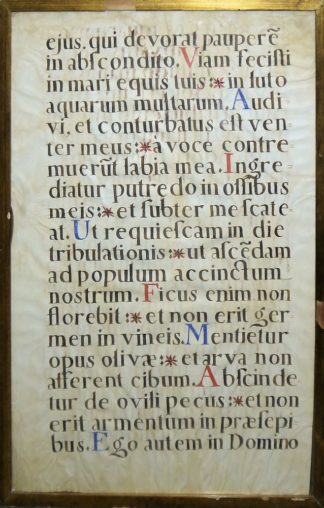 ejus, qui devorat pauperē
in abscondito. Viam fecisti
in mari equis tuis :* in luto
aquarum multarum. Audi
vi, et conturbatus est ven
ter meus :* à voce contre
muerūt labia mea. Ingre
diatur putredo in ossibus
meis :* et subter me scate
at. Ut requiescam in die
tribulationis :* ut ascēdam
ad populum accinctum
nostrum. Ficus enim non
florebit :* et non erit ger
men in vineis. Mentietur
opus olivæ :* et arva non
afferent cibum. Abscinde
tur de ovili pecus :* et non
erit armentum in præsepi
bus. Ego autem in Domino